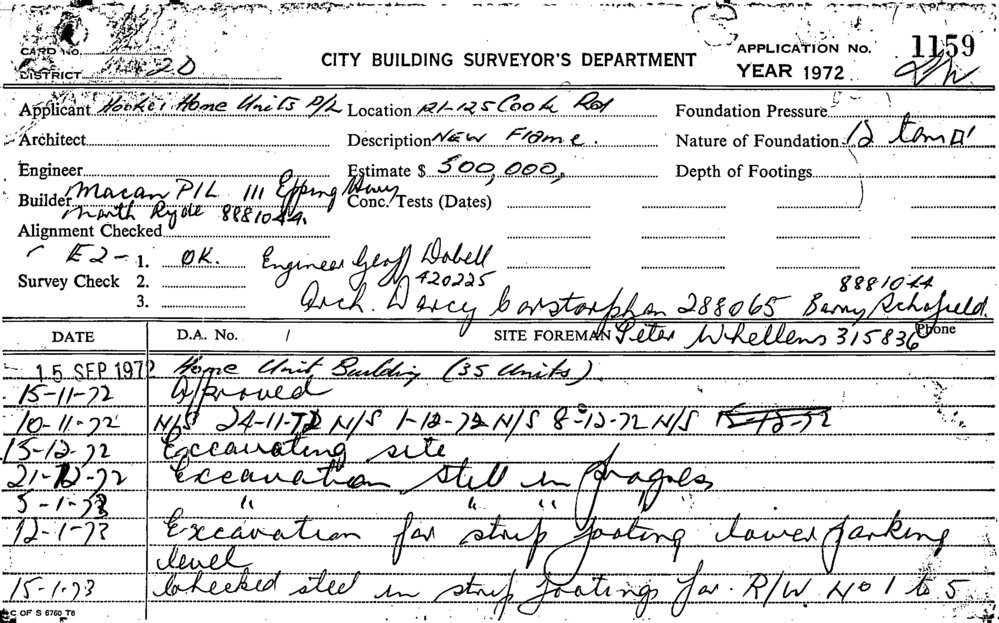 CARD No.
DISTRICT 20
CITY BUILDING SURVEYOR'S DEPARTMENT
APPLICATION No. 1159
YEAR 1972
Applicant Hooker Home Units P/L Location 121-125 Cook Rd Foundation Pressure
Architect Description NEW Flame. Nature of Foundation 12 tons □'
Engineer Estimate $ 500,000, Depth of Footings
Builder Macan P/L 111 Epping Hwy Conc. Tests (Dates)
North Ryde 8881044.
Alignment Checked
E2 - 1. OK. Engineer Geoff Dobell
Survey Check 2. 420225 8881044
3. Arch. Darcy Corstorphan 288065 Barry Schofield.
DATE D.A. No. / SITE FOREMAN Peter Whellens 315836 Phone
15 SEP 1972 Home Unit Building (35 Units).
15-11-72 Approved
10-11-72 N/S 24-11-72 N/S 1-12-72 N/S 8-12-72 N/S 15-12-72
15-12-72 Excavating site
21-12-72 Excavation still in progress
5-1-73 " " " "
12-1-73 Excavation for strip footing lower parking
level
15-1-73 Checked steel in strip footings for R/W No 1 to 5
C OF S 6760 T6